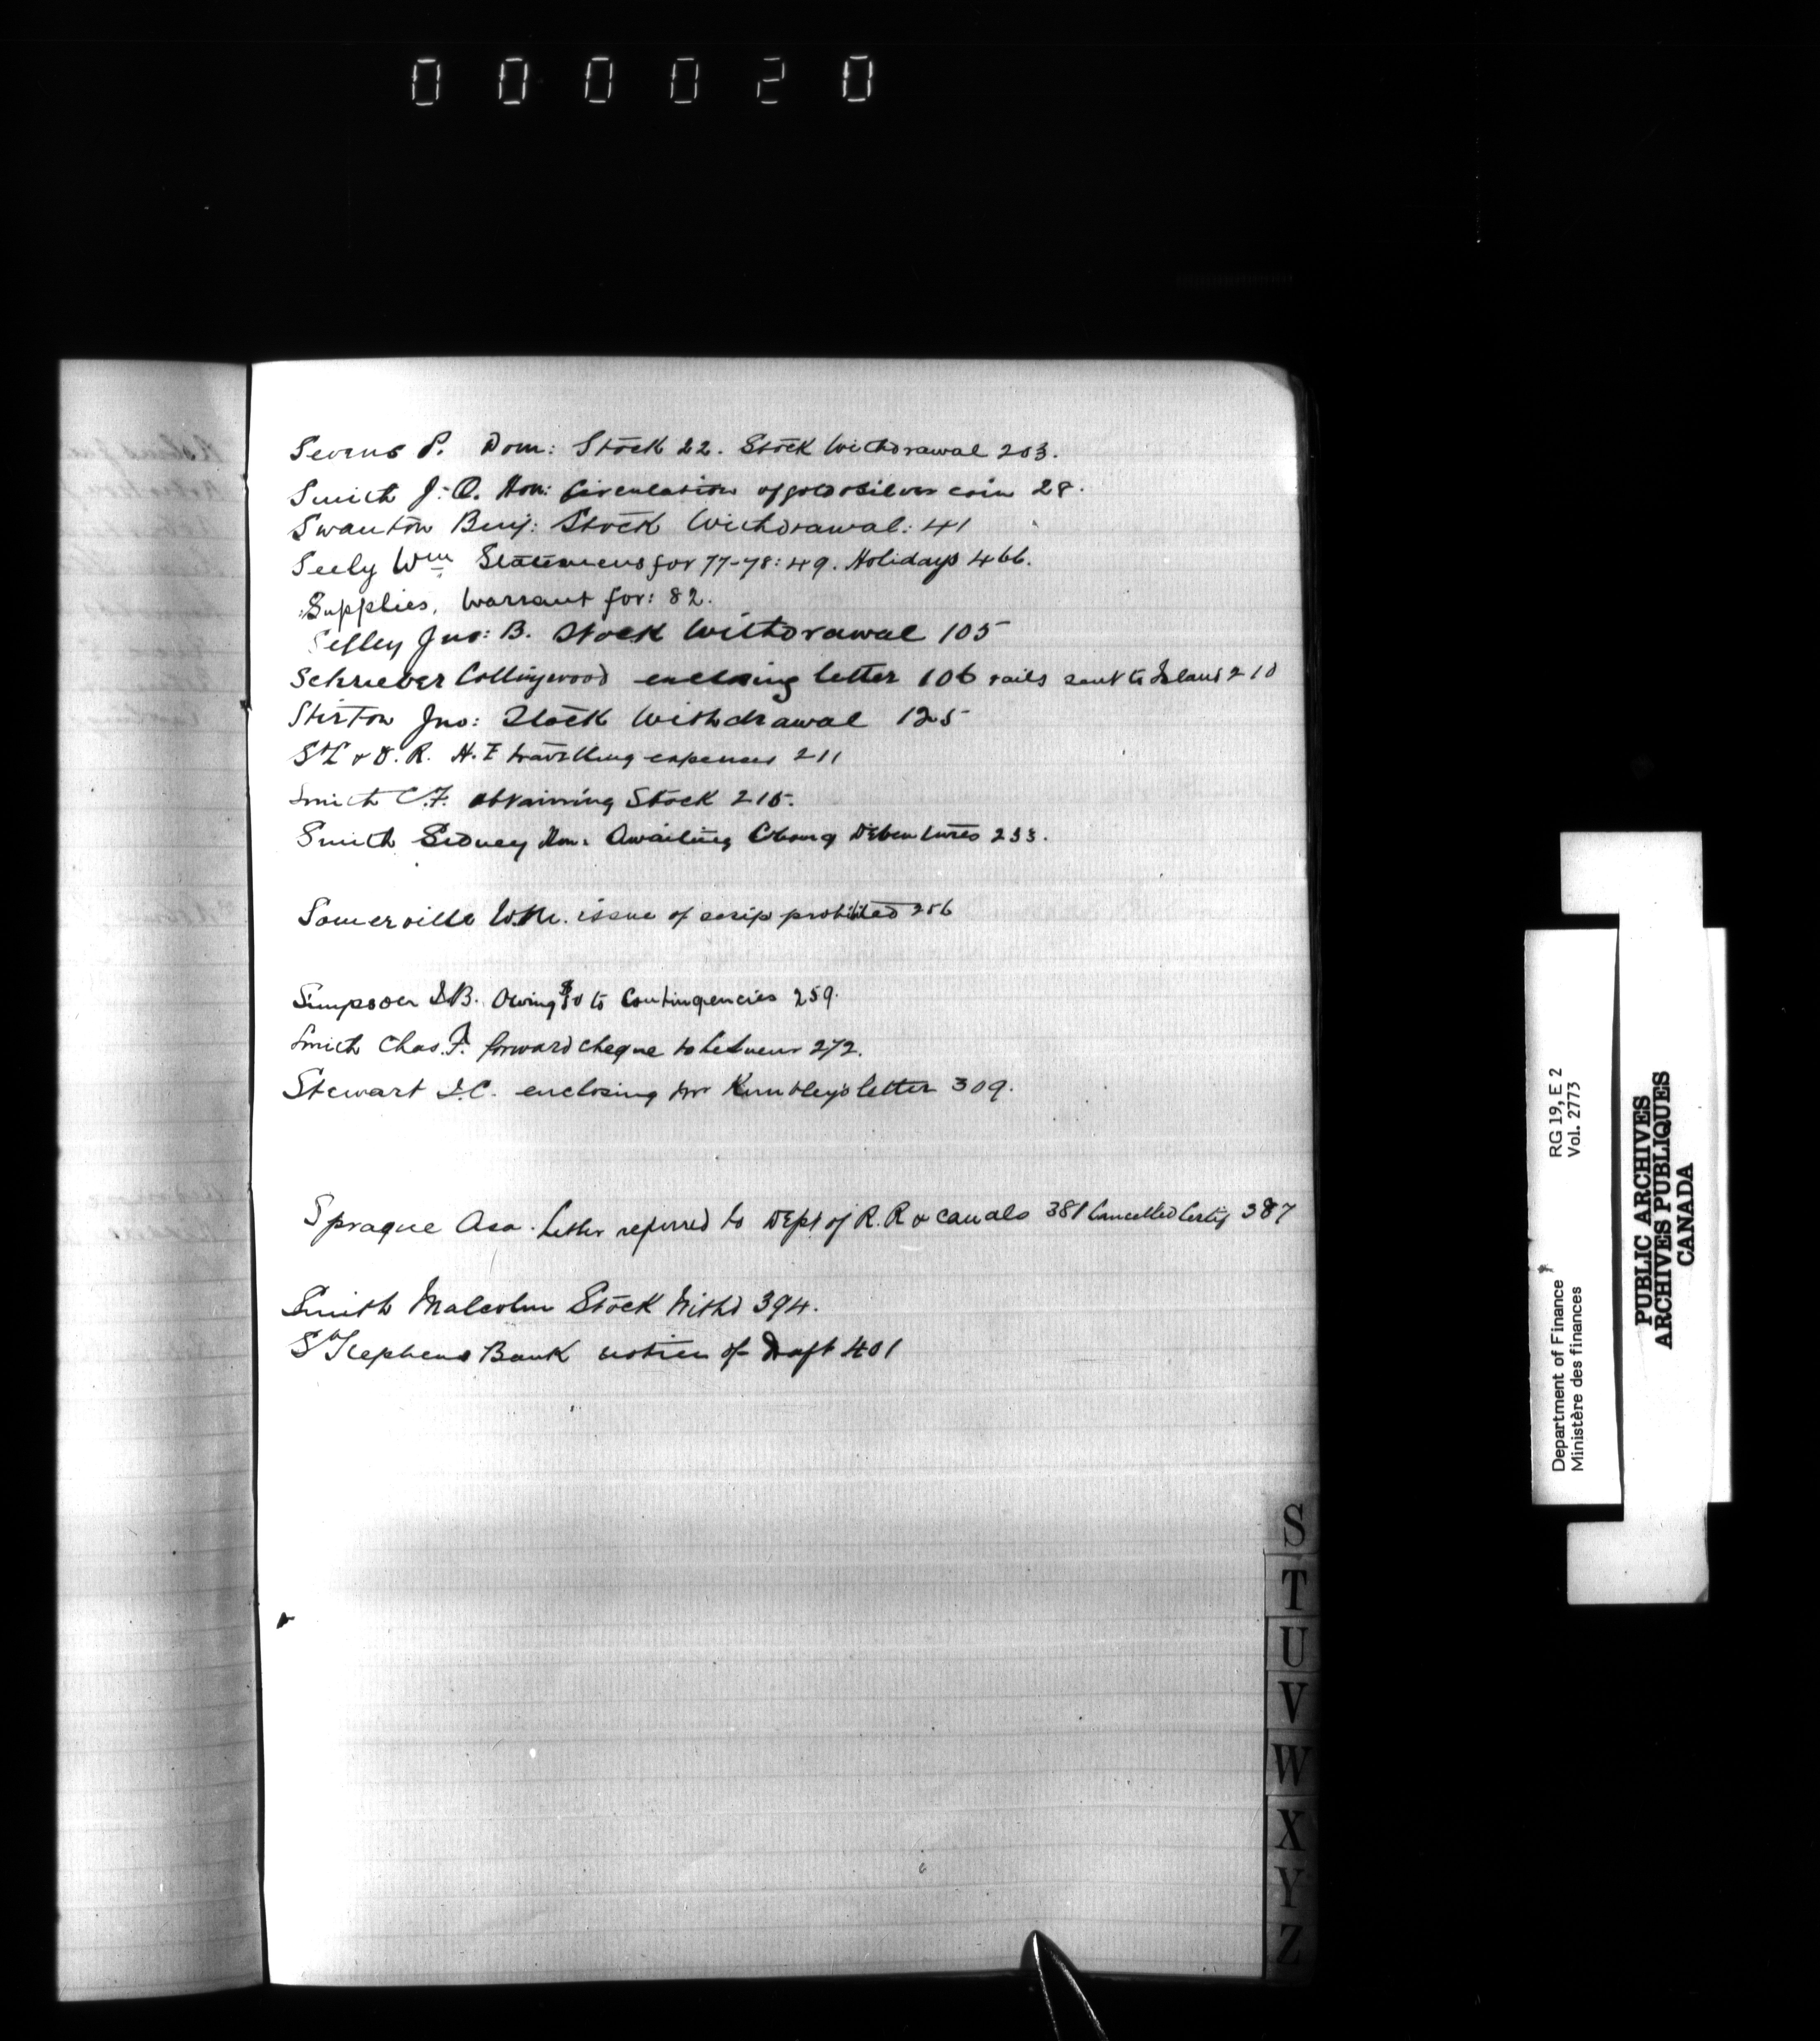 000020
Severus P. Dom: Stock 22. Stock Withdrawal 203.
Smith J. O. Hon: Circulation of gold & silver coin 28.
Swanton Benj: Stock Withdrawal: 41
Seely Wm Statements for 77-78: 49. Holidays 466.
Supplies, Warrant for: 82.
Jno: B. Stock Withdrawal 105
Schrieber Collingwood enclosing letter 106 rails sent to Island 210
Stirton Jno: Stock Withdrawal 125
St L & O. R. travelling expenses 211
Smith C. F. obtaining Stock 215.
Smith Sidney Hon: Awaiting Cbourg Debentures 233.
Somerville Wm. issue of scrip prohibited 256
Simpson I.B. Owing $10 to Contingencies 259.
Smith Chas. F. forward cheque to 272.
Stewart J.C. enclosing Mr letter 309.
Sprague Asa. Letter referred to Dept of R. R & canals 381 Cancelled Certif 387
Smith Malcolm Stock Withd 394.
St Stephens Bank notice of Draft 401
S
T
U
V
W
X
Y
Z
Department of Finance RG 19, E 2
Ministère des finances Vol. 2773
PUBLIC ARCHIVES
ARCHIVES PUBLIQUES
CANADA